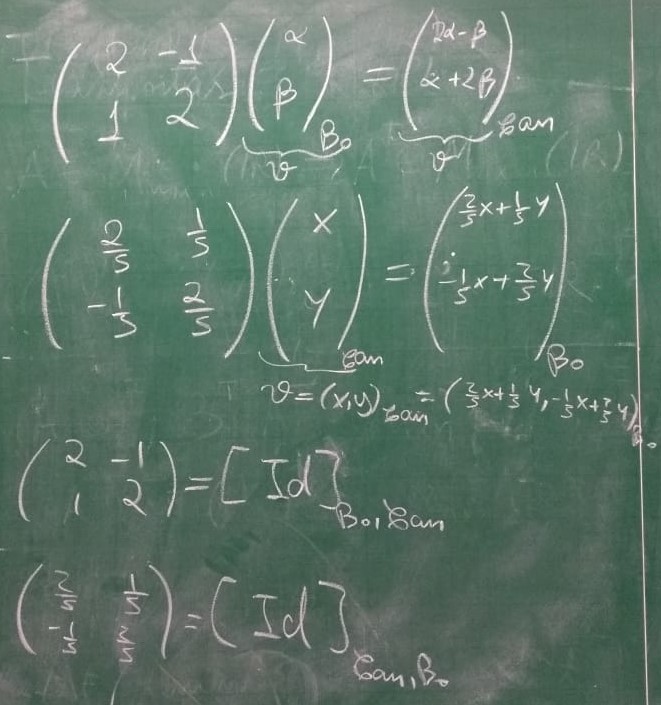 ( 2 -1 ; 1 2 ) ( α ; β )_{B₀} = ( 2α-β ; α+2β )_{Can}
v v
( 2/5 1/5 ; -1/5 2/5 ) ( x ; y )_{Can} = ( 2/5 x + 1/5 y ; -1/5 x + 2/5 y )_{B₀}
v = (x,y)_{Can} = ( 2/5 x + 1/5 y , -1/5 x + 2/5 y )_{B₀}
( 2 -1 ; 1 2 ) = [ Id ]_{B₀,Can}
( 2/5 1/5 ; -1/5 2/5 ) = [ Id ]_{Can,B₀}